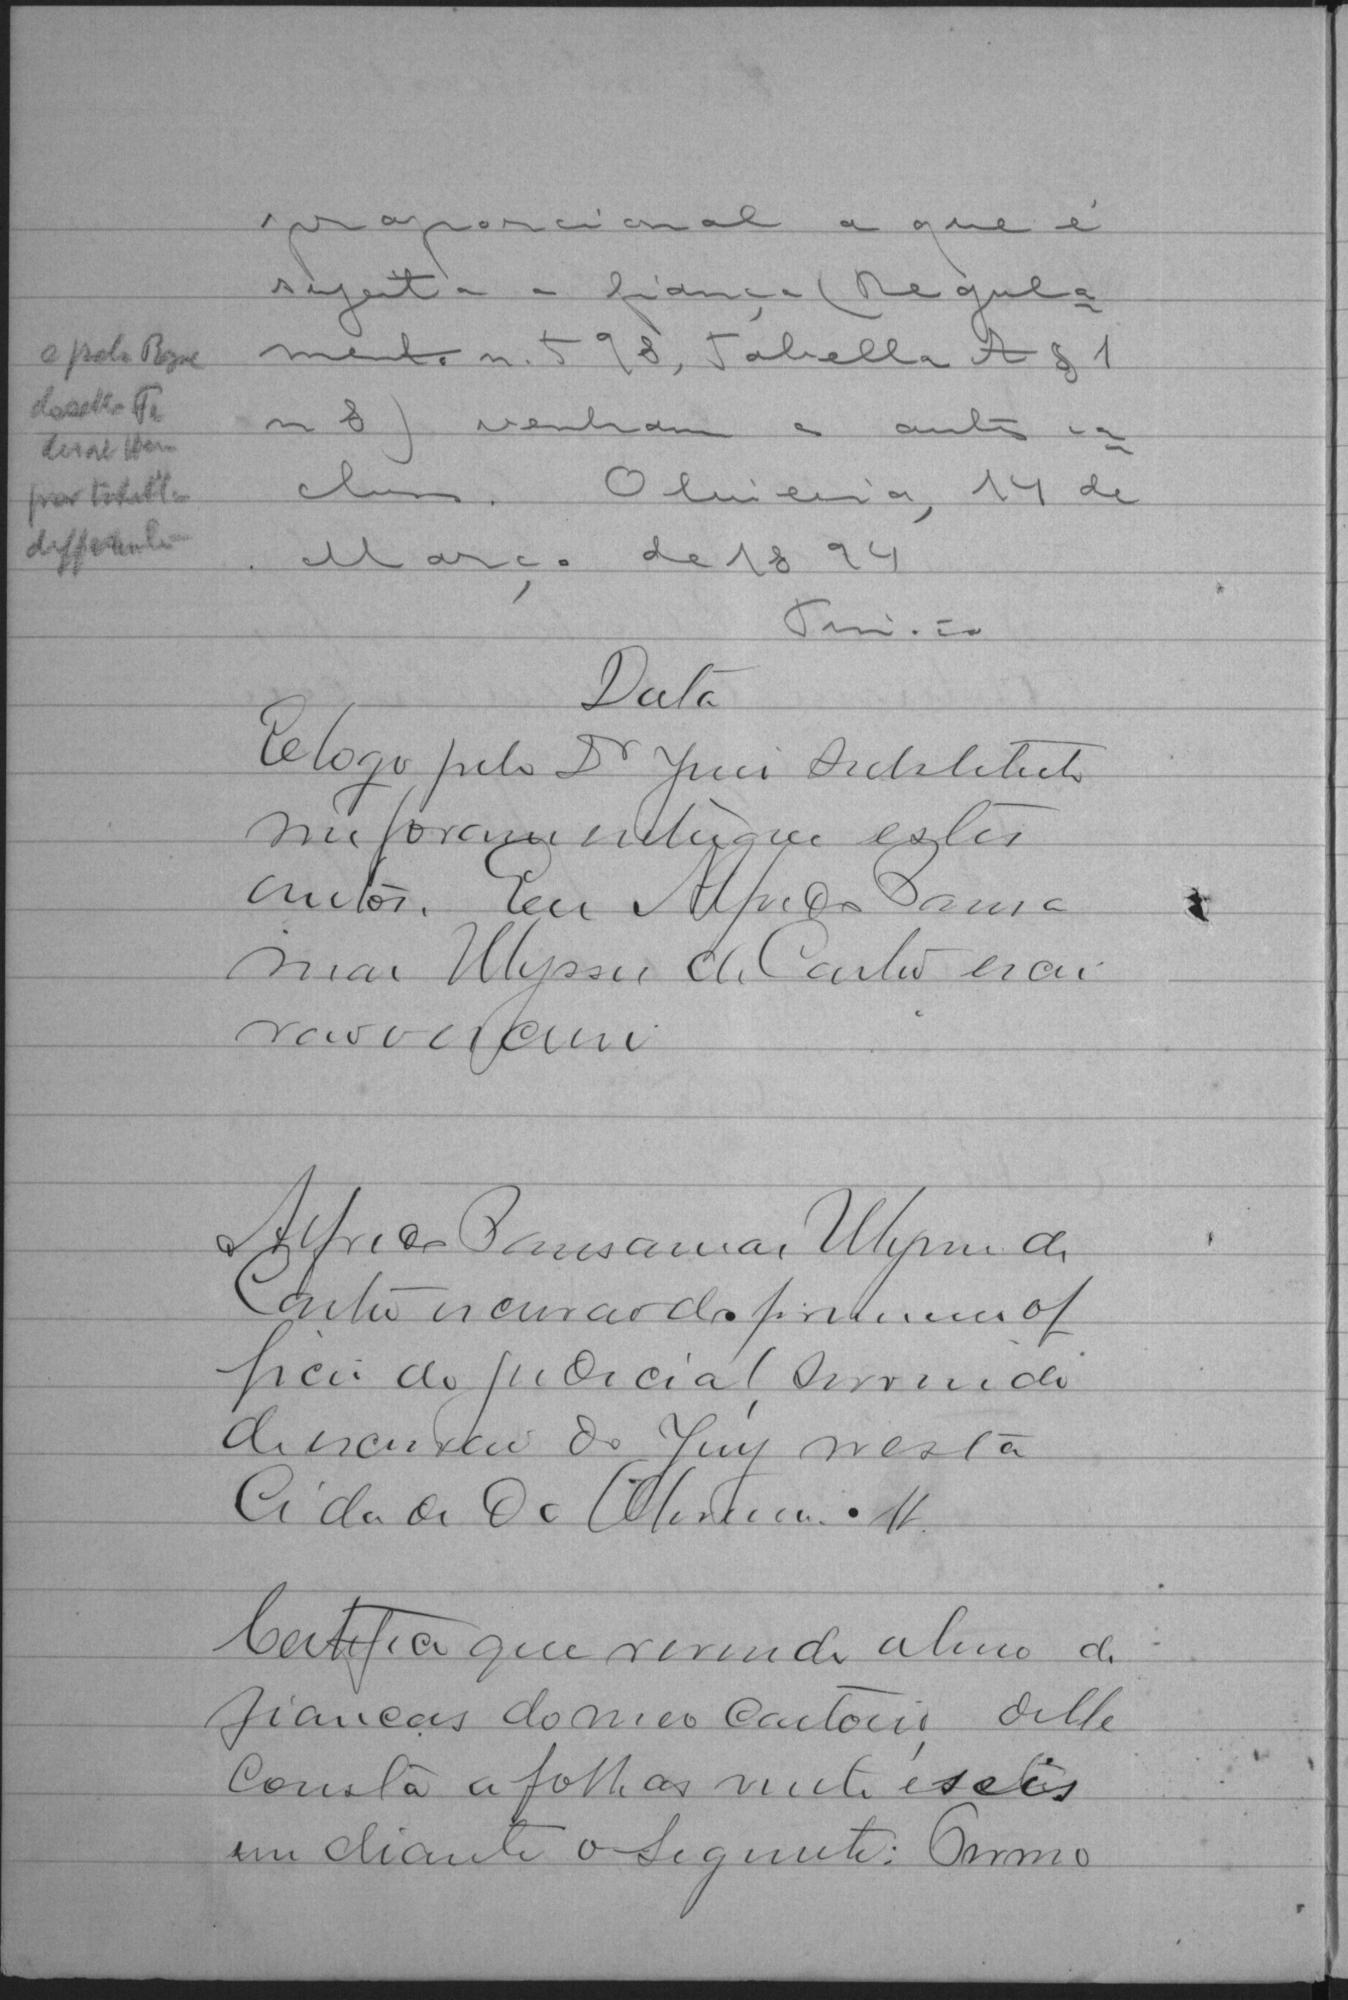 proporcional a que é
sujeita a fiança (Regula
mento n. 598, Tabella A § 1
n 8) venham os autos con
clusos. Oliveira, 14 de
Março de 1894
Data
E logo pelo Dr Juiz Substituto
me foram entregues estes
autos. Eu Alfredo Pansa
mar Ulysses de Castro escri
vão o escrevi
Alfredo Pansamar Ulysses de
Castro escrivão do primeiro of
ficio do judicial, servindo
de escrivão do Jury nesta
Cidade de Oliveira.
Certifico que revendo o livro de
fianças do meo Cartorio, delle
consta a folhas vinte e seis
em diante o seguinte: Termo